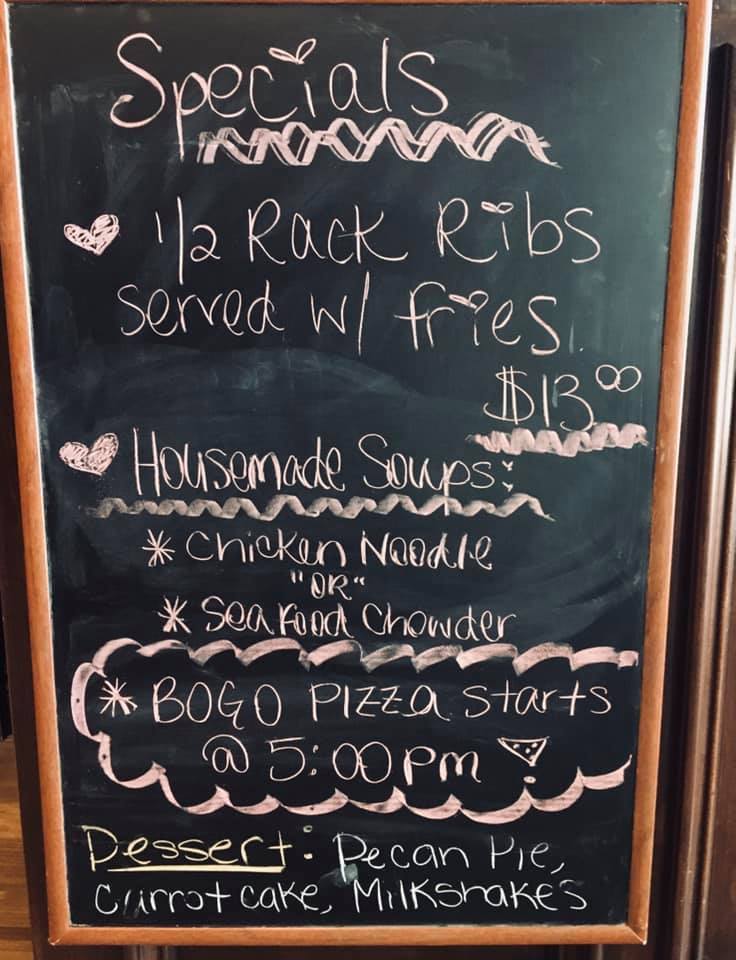 Specials
1/2 Rack Ribs
served w/ fries.
$13.00
Housemade Soups:
* Chicken Noodle
"OR"
* Seafood Chowder
* BOGO PIZZA starts
@ 5:00 pm
Dessert: Pecan Pie,
Carrot cake, Milkshakes